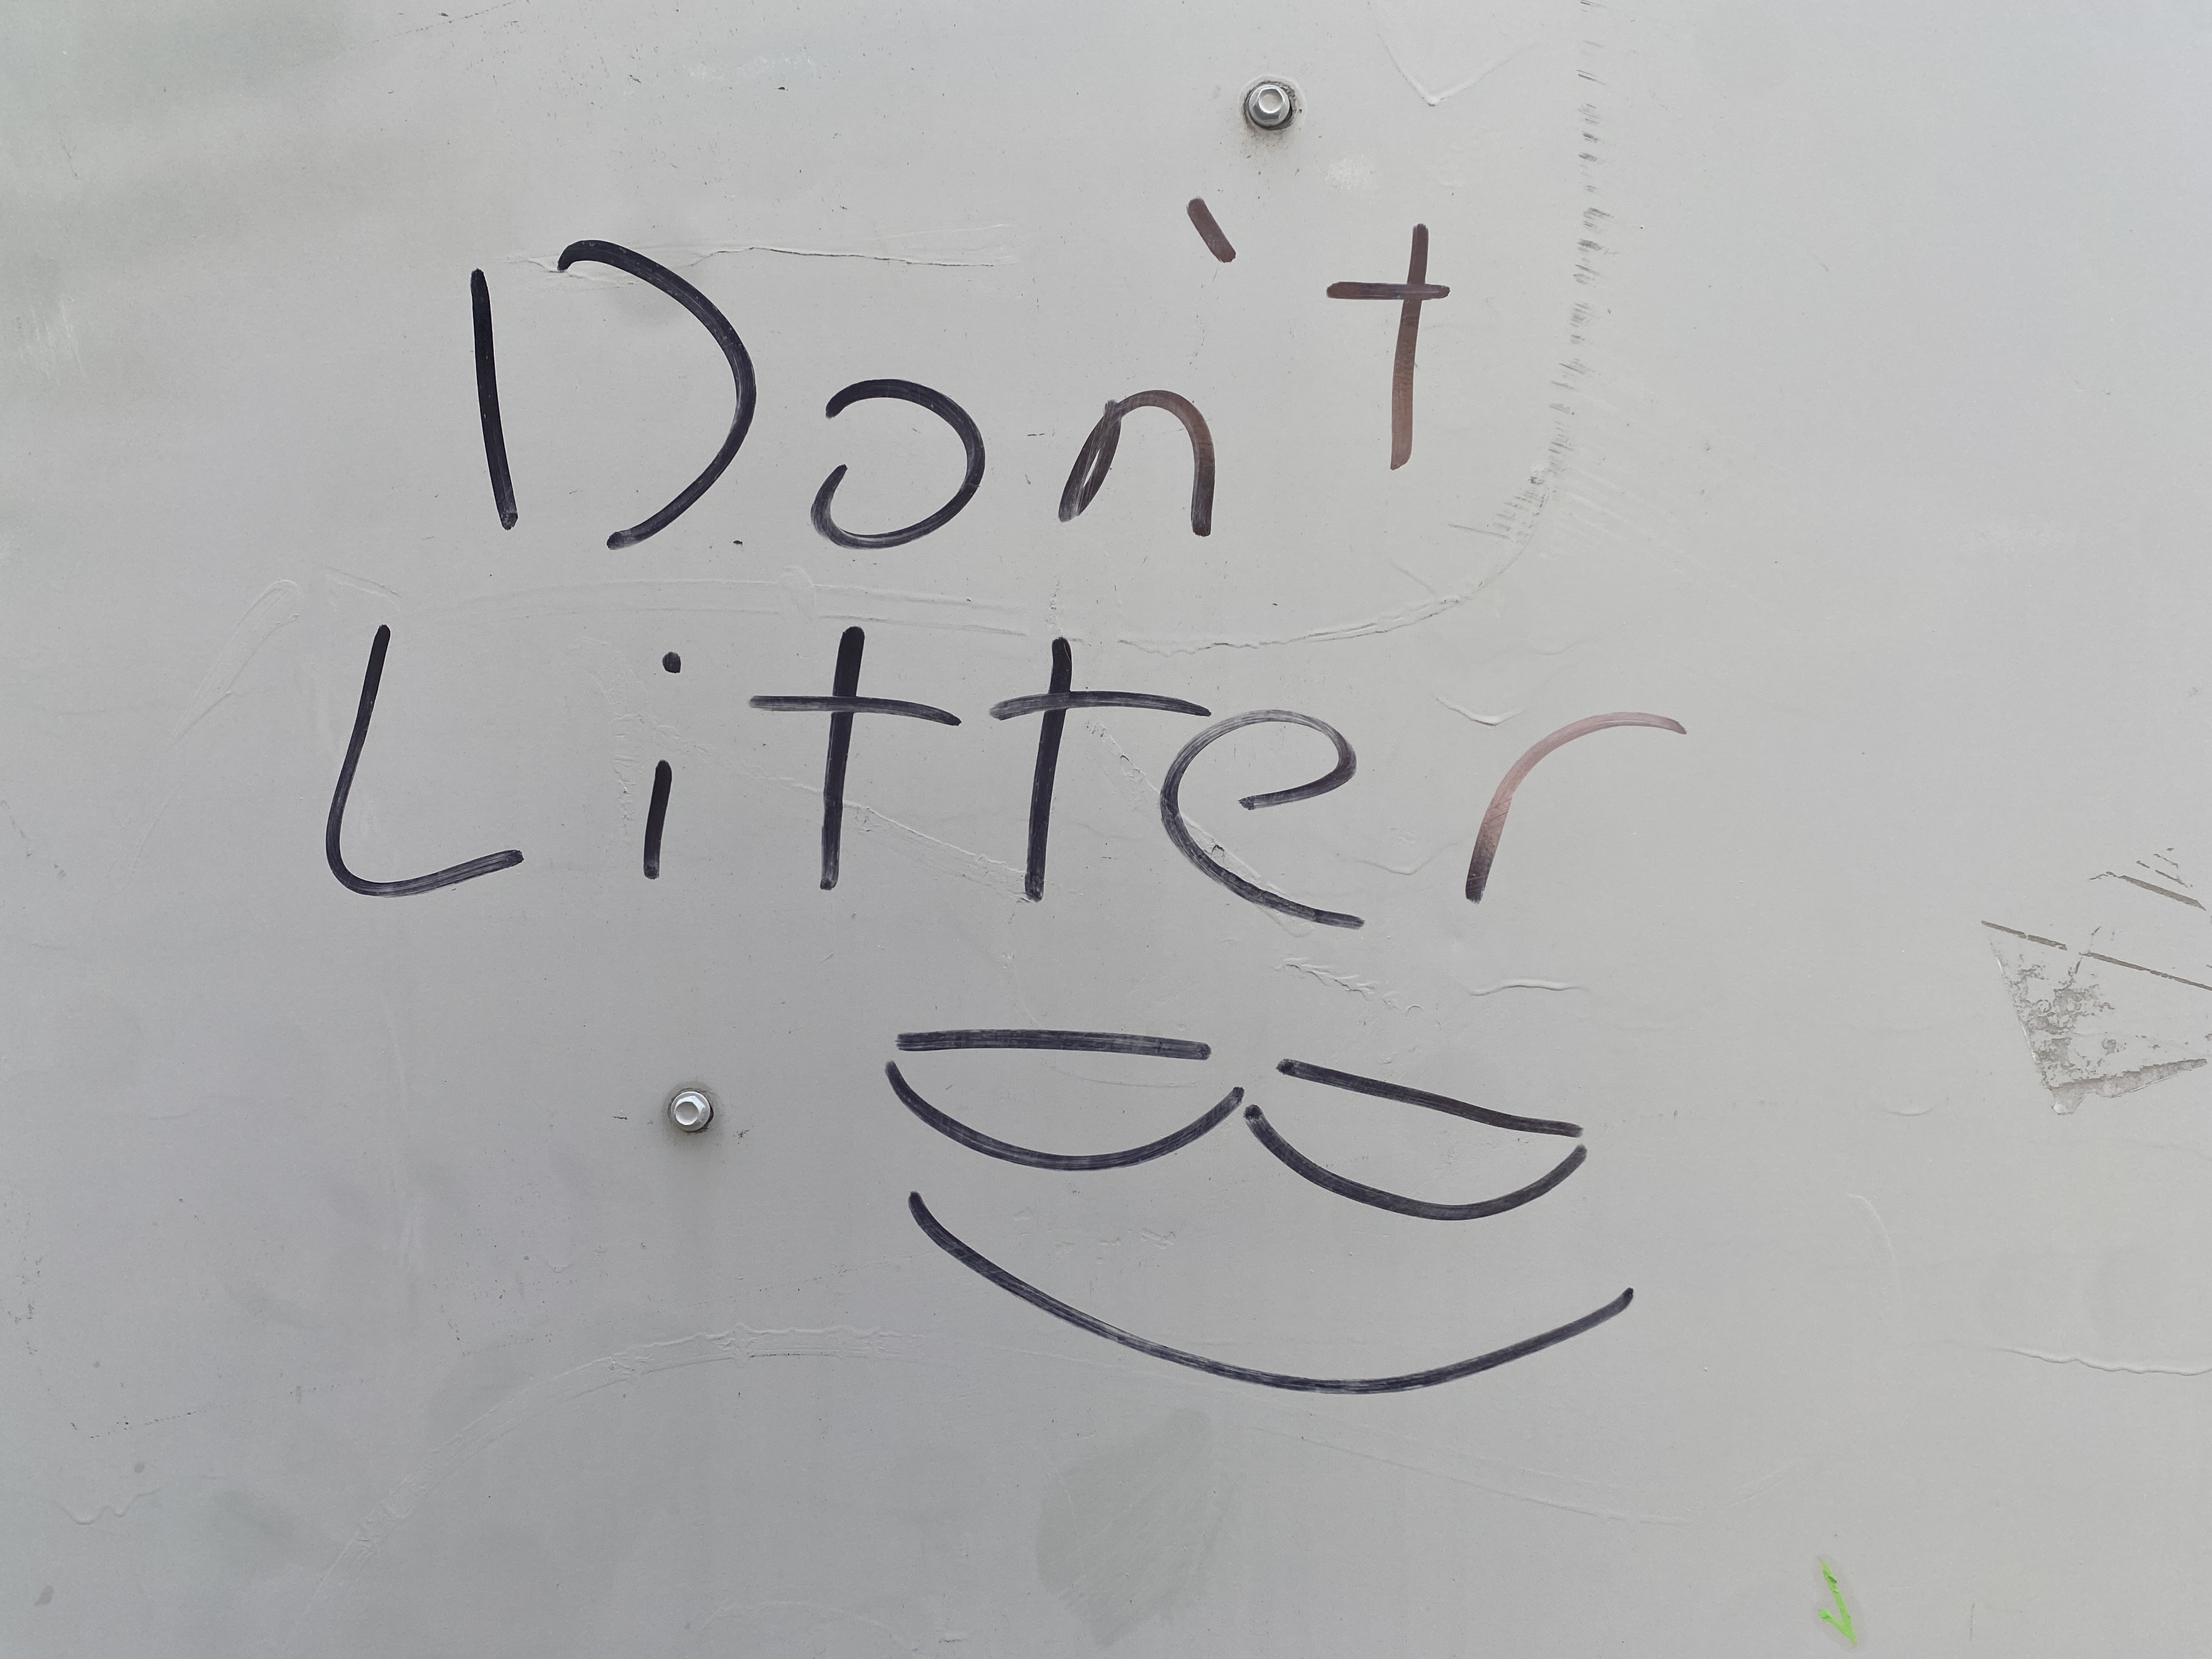 Don't
Litter